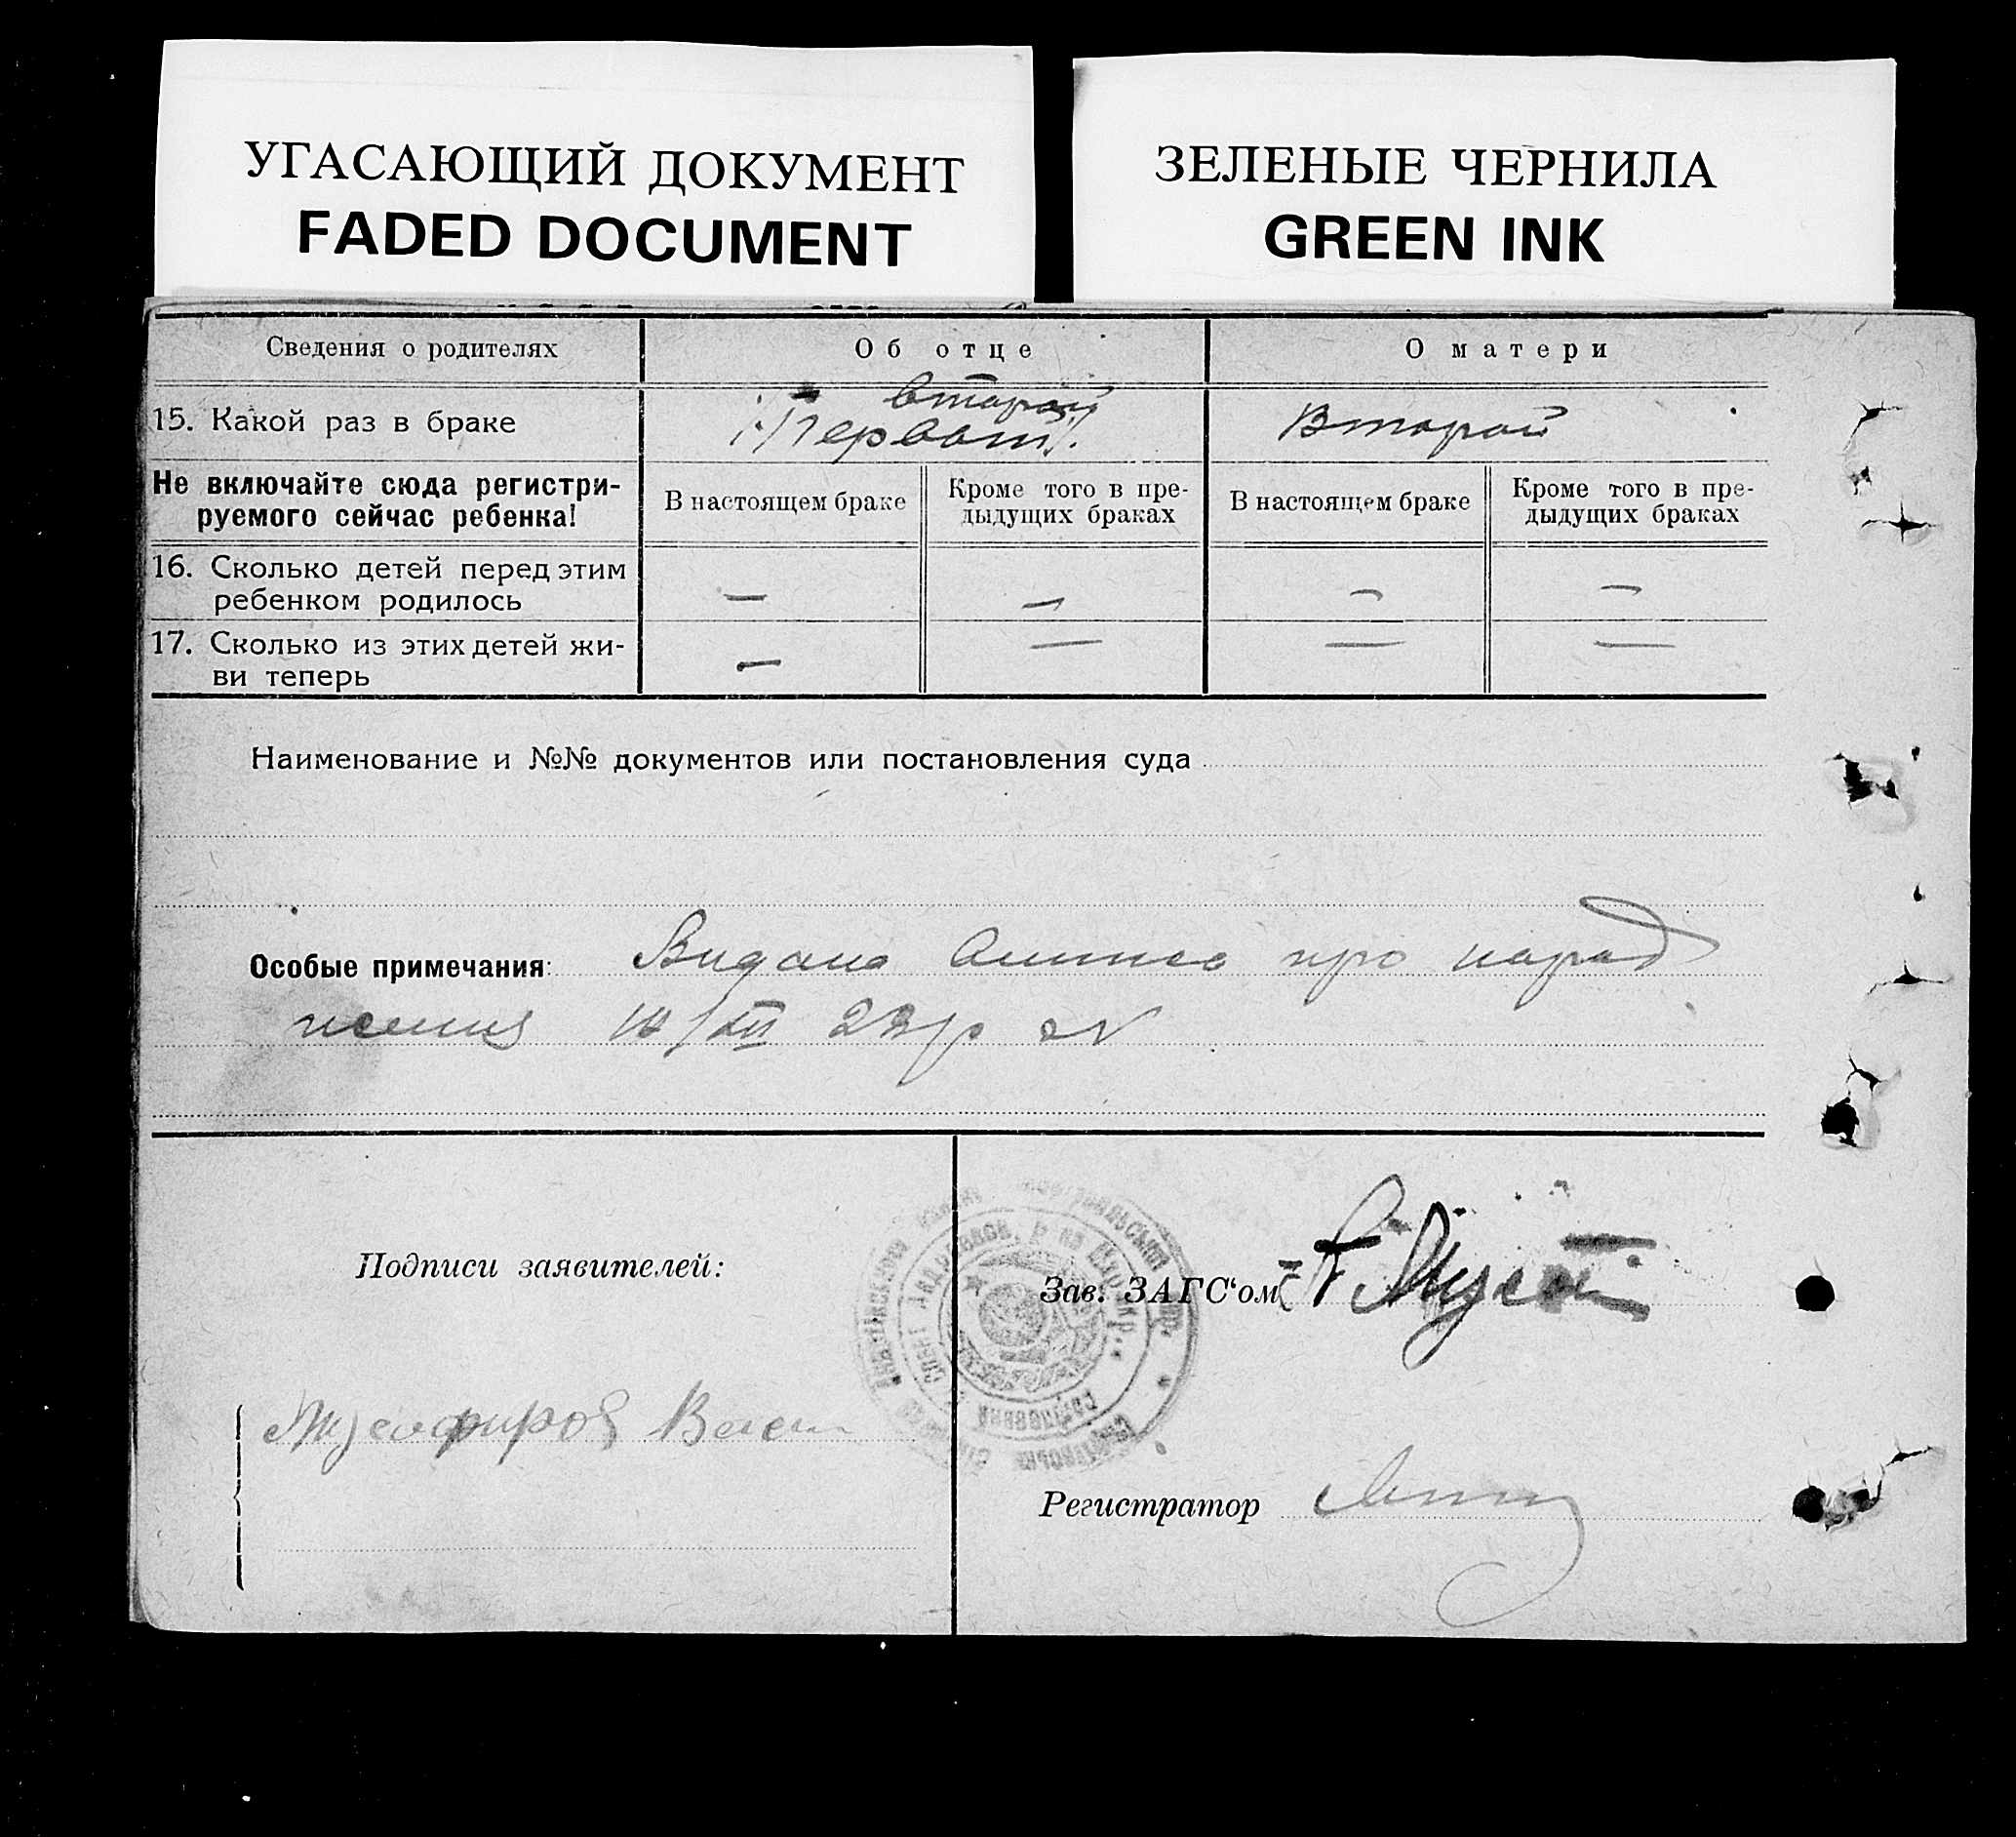 УГАСАЮЩИЙ ДОКУМЕНТ
FADED DOCUMENT
ЗЕЛЕНЫЕ ЧЕРНИЛА
GREEN INK
Сведения о родителях
Об отце
О матери
15. Какой раз в браке
второй
Второй
Не включайте сюда регистри-
руемого сейчас ребенка!
В настоящем браке
Кроме того в пре-
дыдущих браках
В настоящем браке
Кроме того в пре-
дыдущих браках
16. Сколько детей перед этим
ребенком родилось
— — — —
17. Сколько из этих детей жи-
ви теперь
— — — —
Наименование и №№ документов или постановления суда
Особые примечания: Видана про народ
ження
Подписи заявителей:
Зав. ЗАГС‘ом
Регистратор